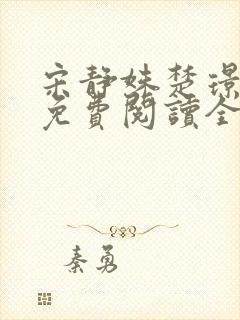 宋静姝楚璟
免費閱讀全
秦勇